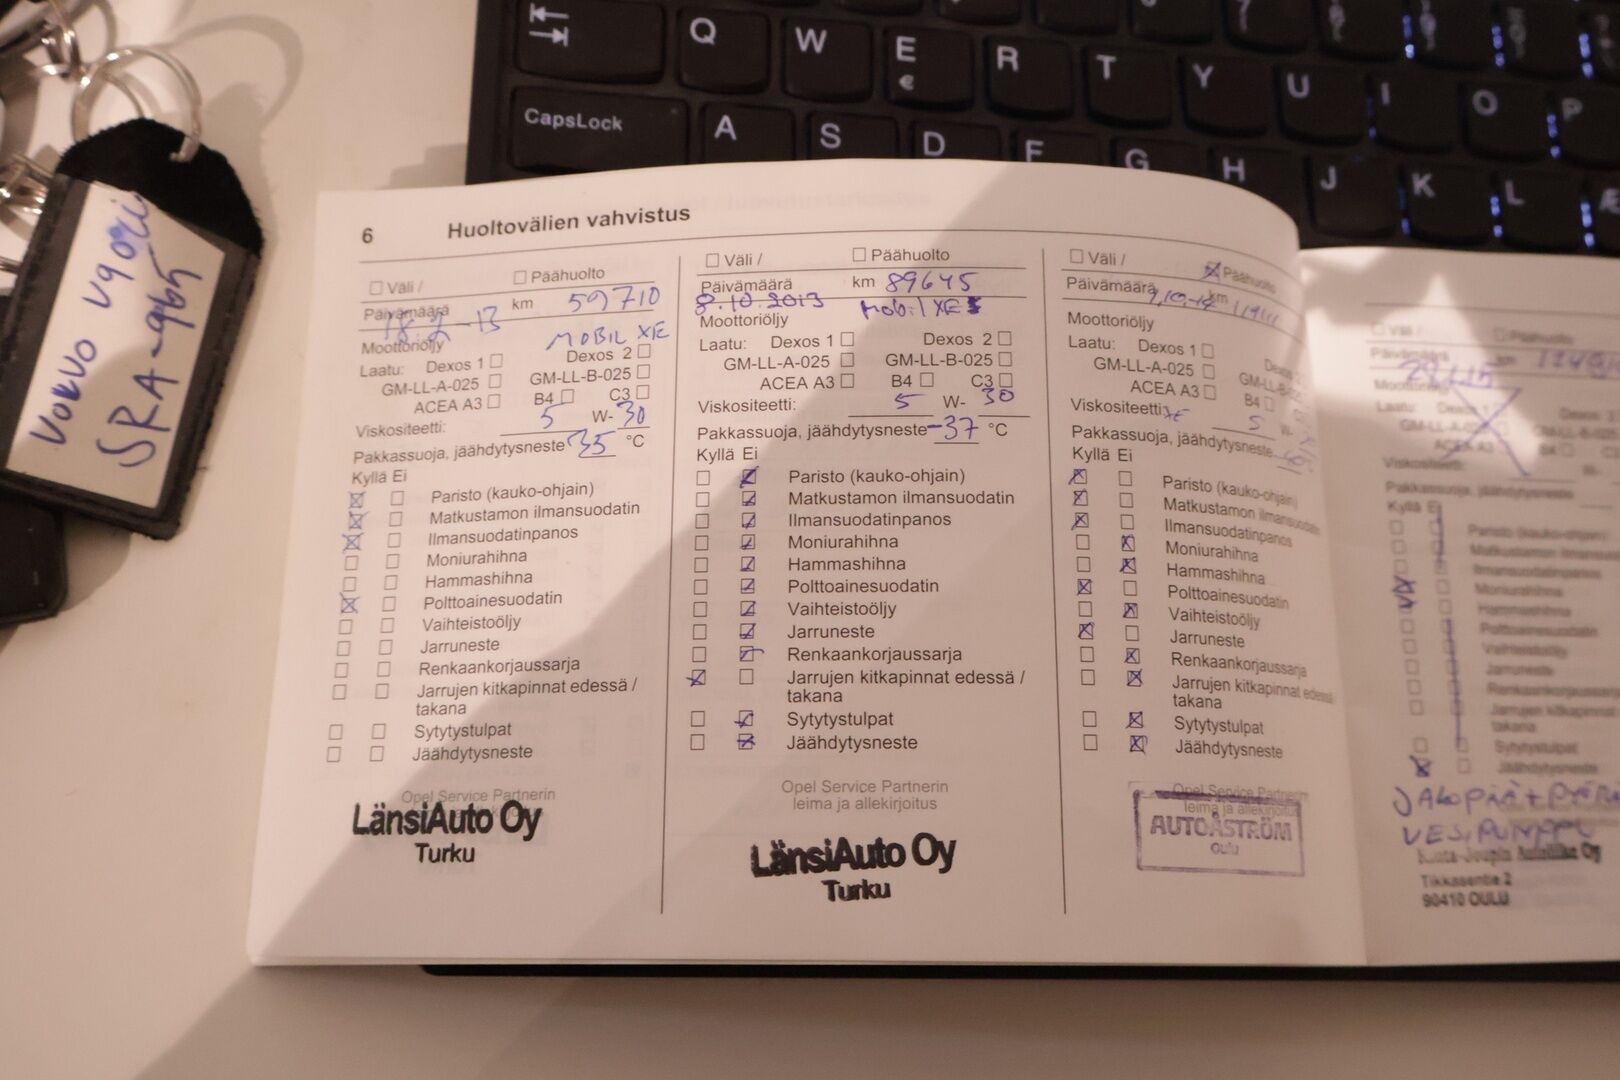 Q W E R T Y U I O P
€
CapsLock A S D F G H J K L Æ
SRA-965
6 Huoltovälien vahvistus
Väli / Päähuolto
Päivämäärä km 59710
18.2-13
Moottoriöljy MOBIL XE
Laatu: Dexos 1 Dexos 2
GM-LL-A-025 GM-LL-B-025
ACEA A3 B4 C3
Viskositeetti: 5 W- 30
Pakkassuoja, jäähdytysneste -35 °C
Kyllä Ei
Paristo (kauko-ohjain)
Matkustamon ilmansuodatin
Ilmansuodatinpanos
Moniurahihna
Hammashihna
Polttoainesuodatin
Vaihteistoöljy
Jarruneste
Renkaankorjaussarja
Jarrujen kitkapinnat edessä /
takana
Sytytystulpat
Jäähdytysneste
Opel Service Partnerin
leima ja allekirjoitus
LänsiAuto Oy
Turku
Väli / Päähuolto
Päivämäärä km 89645
8.10.2013 Mobil XE
Moottoriöljy
Laatu: Dexos 1 Dexos 2
GM-LL-A-025 GM-LL-B-025
ACEA A3 B4 C3
Viskositeetti: 5 W- 30
Pakkassuoja, jäähdytysneste -37 °C
Kyllä Ei
Paristo (kauko-ohjain)
Matkustamon ilmansuodatin
Ilmansuodatinpanos
Moniurahihna
Hammashihna
Polttoainesuodatin
Vaihteistoöljy
Jarruneste
Renkaankorjaussarja
Jarrujen kitkapinnat edessä /
takana
Sytytystulpat
Jäähdytysneste
Opel Service Partnerin
leima ja allekirjoitus
LänsiAuto Oy
Turku
Väli / Päähuolto
Päivämäärä km
Moottoriöljy
Laatu: Dexos 1
GM-LL-A-025
ACEA A3 B4
Viskositeetti: 5 W-
Pakkassuoja, jäähdytysneste
Kyllä Ei
Paristo (kauko-ohjain)
Matkustamon ilmansuodatin
Ilmansuodatinpanos
Moniurahihna
Hammashihna
Polttoainesuodatin
Vaihteistoöljy
Jarruneste
Renkaankorjaussarja
Jarrujen kitkapinnat edessä
takana
Sytytystulpat
Jäähdytysneste
Opel Service Partnerin
leima ja allekirjoitus
AUTOÅSTRÖM
OULU
Väli / Päähuolto
Päivämäärä km
Laatu: Dexos 1 Dexos 2
GM-LL-A-025
ACEA A3 B4 C3
Viskositeetti: W-
Pakkassuoja, jäähdytysneste
Kyllä Ei
Paristo (kauko-ohjain)
Matkustamon
Ilmansuodatinpanos
Moniurahihna
Hammashihna
Polttoainesuodatin
Vaihteistoöljy
Jarruneste
Renkaankorjaussarja
Jarrujen kitkapinnat
takana
Sytytystulpat
Jäähdytysneste
VESIPUMPPU
Tikkasentie 2
90410 OULU